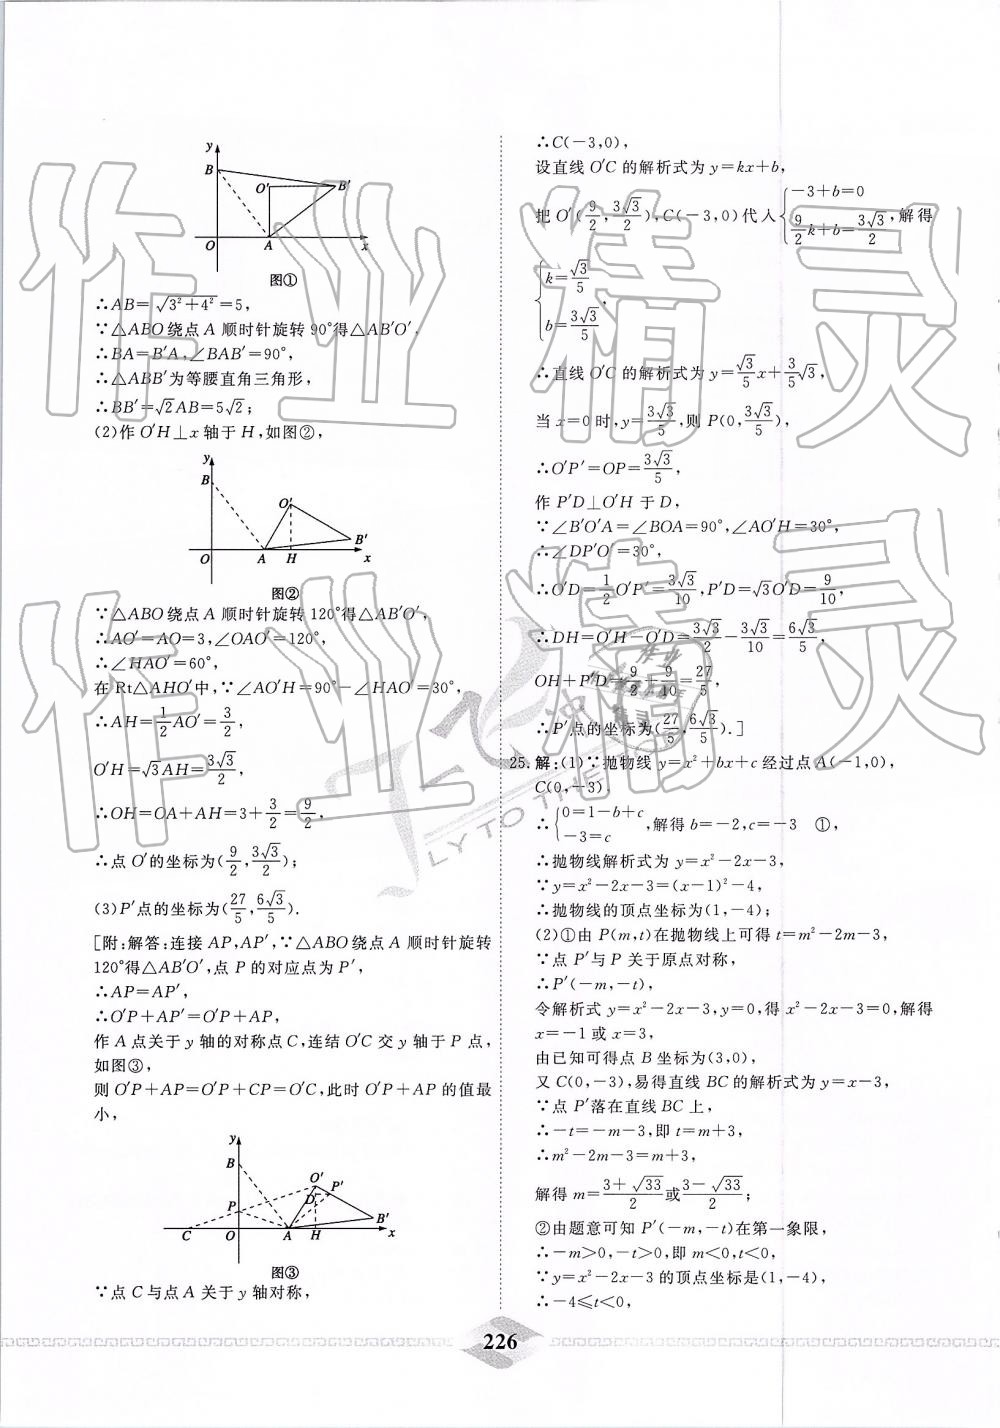 y
B
O′
B′
O
A
x
图①
∴AB=√3²+4²=5,
∵△ABO绕点A顺时针旋转90°得△AB′O′,
∴BA=B′A,∠BAB′=90°,
∴△ABB′为等腰直角三角形,
∴BB′=√2AB=5√2;
(2)作O′H⊥x轴于H,如图②,
y
B
O′
B′
O
A
H
x
图②
∵△ABO绕点A顺时针旋转120°得△AB′O′,
∴AO′=AO=3,∠OAO′=120°,
∴∠HAO′=60°,
在Rt△AHO′中,∵∠AO′H=90°-∠HAO′=30°,
∴AH=1/2AO′=3/2,
O′H=√3AH=3√3/2,
∴OH=OA+AH=3+3/2=9/2,
∴点O′的坐标为(9/2,3√3/2);
(3)P′点的坐标为(27/5,6√3/5).
[附:解答:连接AP,AP′,∵△ABO绕点A顺时针旋转
120°得△AB′O′,点P的对应点为P′,
∴AP=AP′,
∴O′P+AP′=O′P+AP,
作A点关于y轴的对称点C,连结O′C交y轴于P点,
如图③,
则O′P+AP=O′P+CP=O′C,此时O′P+AP的值最
小,
y
B
O′
P′
D
P
B′
C
O
A
H
x
图③
∵点C与点A关于y轴对称,
∴C(-3,0),
设直线O′C的解析式为y=kx+b,
把O′(9/2,3√3/2),C(-3,0)代入{-3+b=0
9/2k+b=3√3/2,解得
{k=√3/5
b=3√3/5,
∴直线O′C的解析式为y=√3/5x+3/5√3,
当x=0时,y=3√3/5,则P(0,3√3/5),
∴O′P′=OP=3√3/5,
作P′D⊥O′H于D,
∵∠B′O′A=∠BOA=90°,∠AO′H=30°,
∴∠DP′O′=30°,
∴O′D=1/2O′P′=3√3/10,P′D=√3O′D=9/10,
∴DH=O′H-O′D=3√3/2-3√3/10=6√3/5,
OH+P′D=9/2+9/10=27/5,
∴P′点的坐标为(27/5,6√3/5).]
25.解:(1)∵抛物线y=x²+bx+c经过点A(-1,0),
C(0,-3).
∴{0=1-b+c
-3=c,解得b=-2,c=-3 ①,
∴抛物线解析式为y=x²-2x-3,
∵y=x²-2x-3=(x-1)²-4,
∴抛物线的顶点坐标为(1,-4);
(2)①由P(m,t)在抛物线上可得t=m²-2m-3,
∵点P′与P关于原点对称,
∴P′(-m,-t),
令解析式y=x²-2x-3,y=0,得x²-2x-3=0,解得
x=-1或x=3,
由已知可得点B坐标为(3,0),
又C(0,-3),易得直线BC的解析式为y=x-3,
∵点P′落在直线BC上,
∴-t=-m-3,即t=m+3,
∴m²-2m-3=m+3,
解得m=3+√33/2或3-√33/2;
②由题意可知P′(-m,-t)在第一象限,
∴-m>0,-t>0,即m<0,t<0,
∵y=x²-2x-3的顶点坐标是(1,-4),
∴-4≤t<0,
226
作业精灵
作业精灵